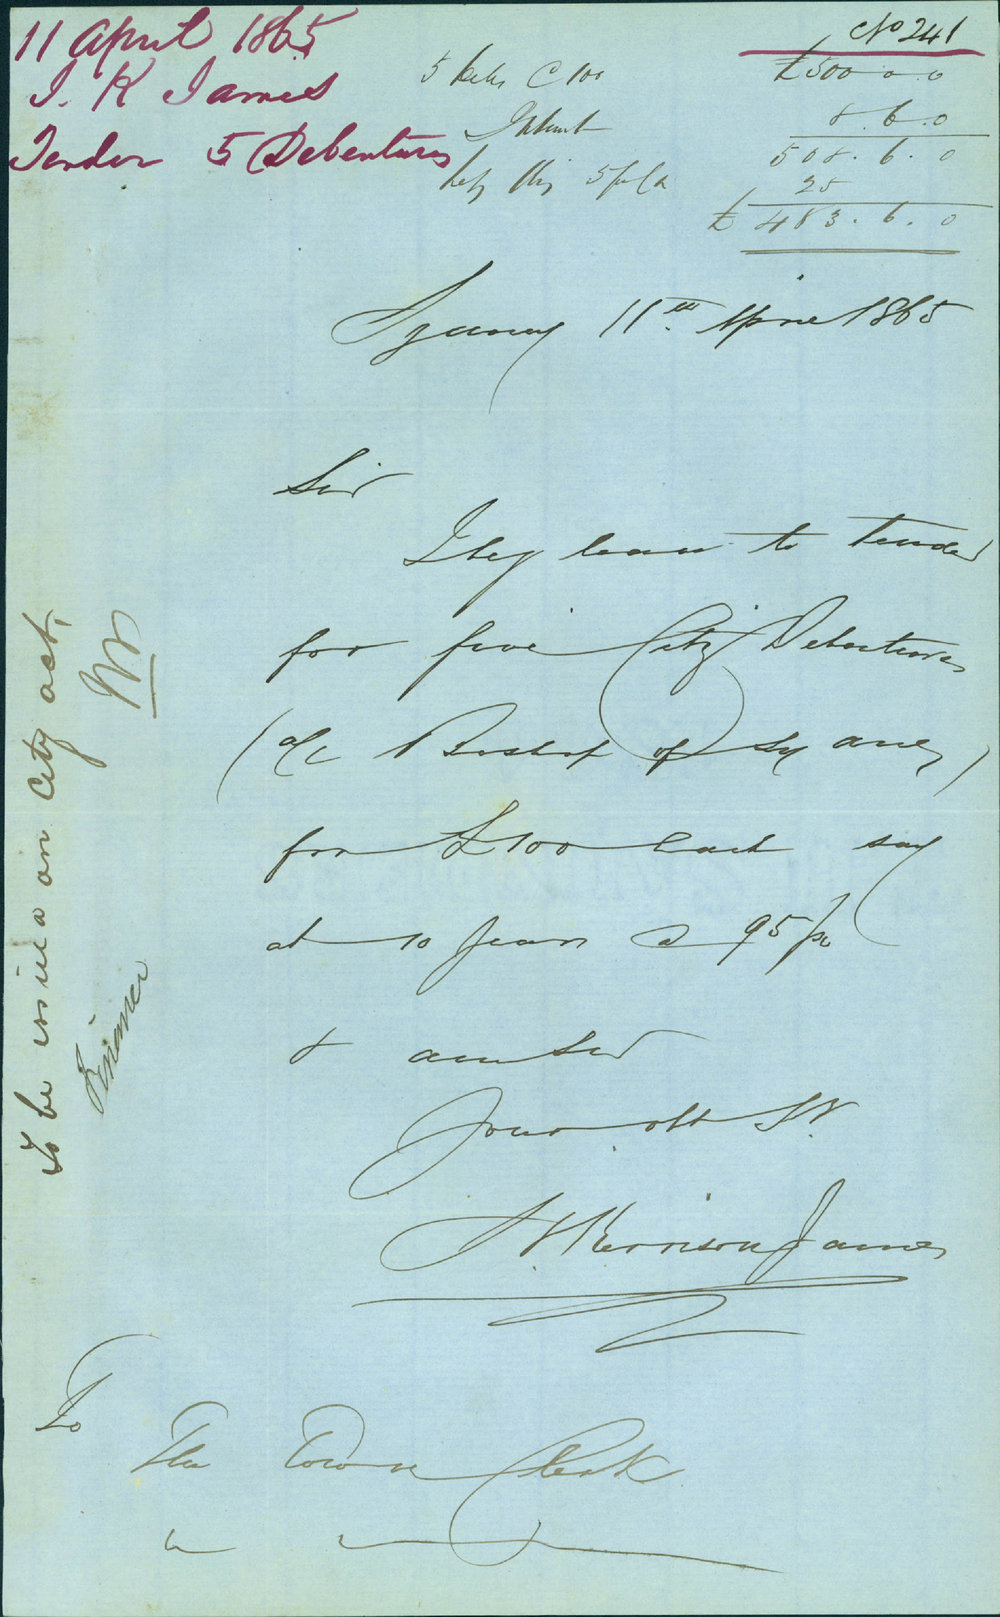 11 April 1865
J. K James
Tender 5 Debentures
No 241
5 Debs @ 100 £500 0 0
Interest 8. 6. 0
508. 6. 0
less this 5 p Ct 25
£ 483. 6. 0
Sydney 11th April 1865
Sir
I beg leave to Tender
for five City Debentures
(a/c Bishop of Sydney)
for £100 each say
at 10 years @ 95 pc
& am Sir
Your obt St
Kerrison James
To
The Town Clerk
To be issued on City act,
Finance